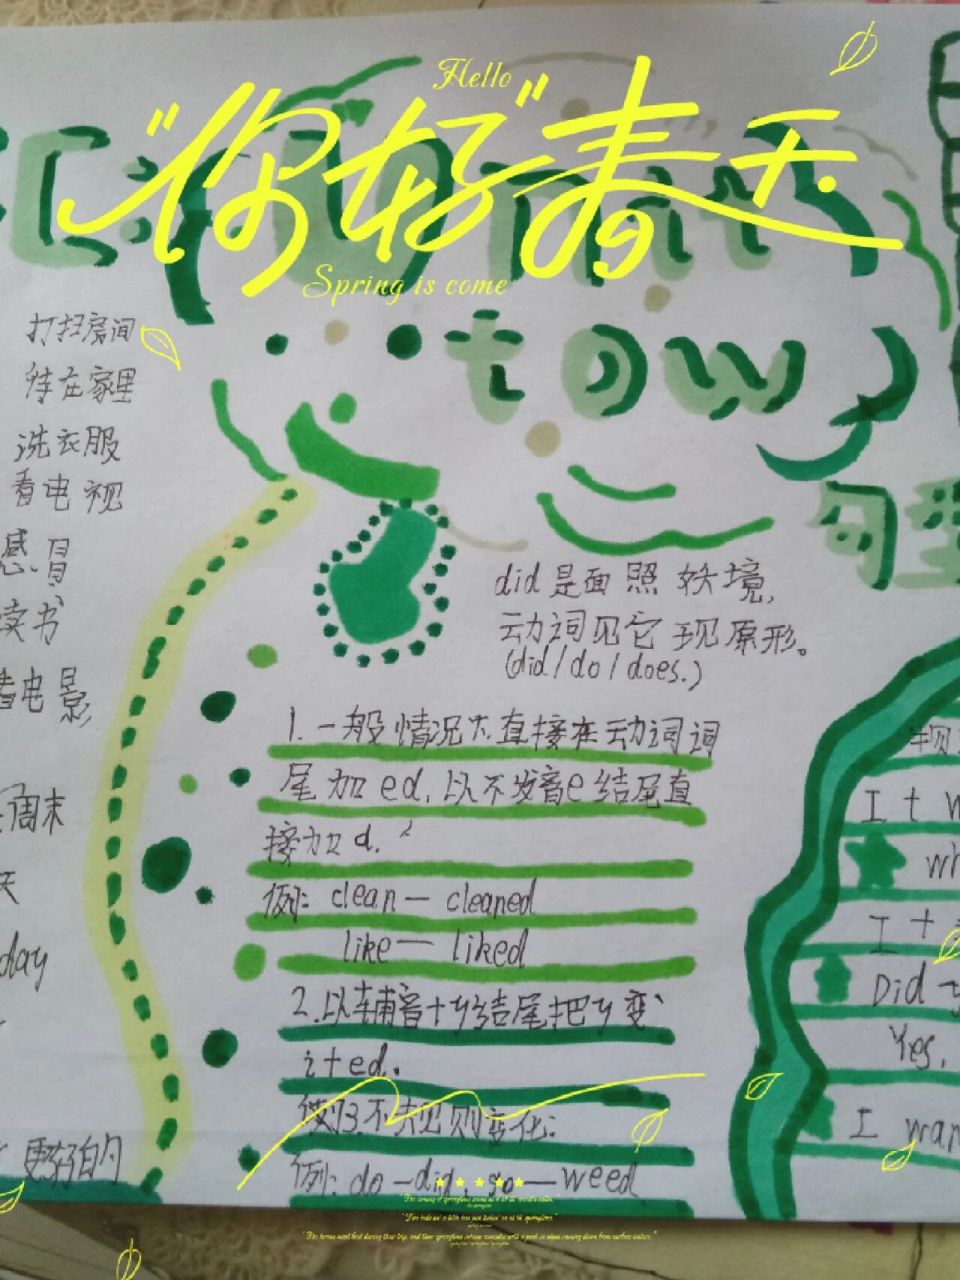 Hello
"你好"春天
Spring is come
Unit
tow
打扫房间
待在家里
洗衣服
看电视
感冒
读书
看电影
周末
天
day
更好的
句型
did 是面照妖境,
动词见它现原形。
(did/do/does.)
1. 一般情况下直接在动词词
尾加 ed, 以不发音e结尾直
接加d.
例: clean — cleaned
like — liked
2. 以辅音+y结尾把y变
i+ed.
3. 不规则变化:
例: do — did, go — weed
It w
wh
I
Did y
Yes,
I wan